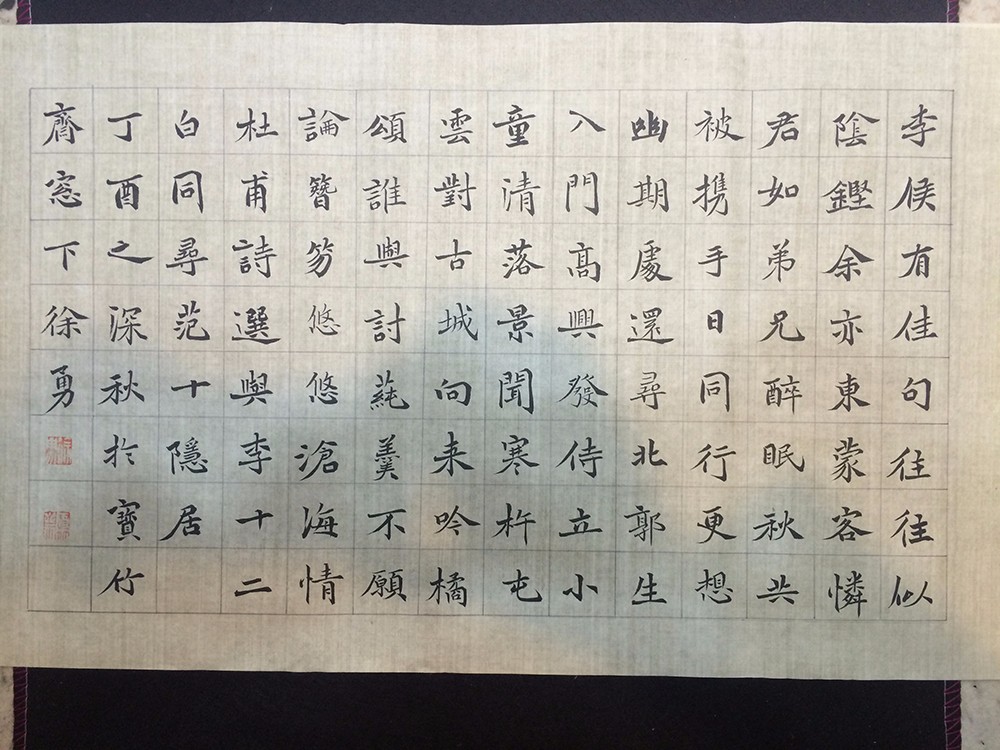 李侯有佳句往往似
陰鏗余亦東蒙客憐
君如弟兄醉眠秋共
被携手日同行更想
幽期處還尋北郭生
入門高興發侍立小
童清落景聞寒杵屯
雲對古城向来吟橘
頌誰與討蒓羹不願
論簪笏悠悠滄海情
杜甫詩選與李十二
白同尋范十隱居
丁酉之深秋於寶竹
齋窓下徐勇